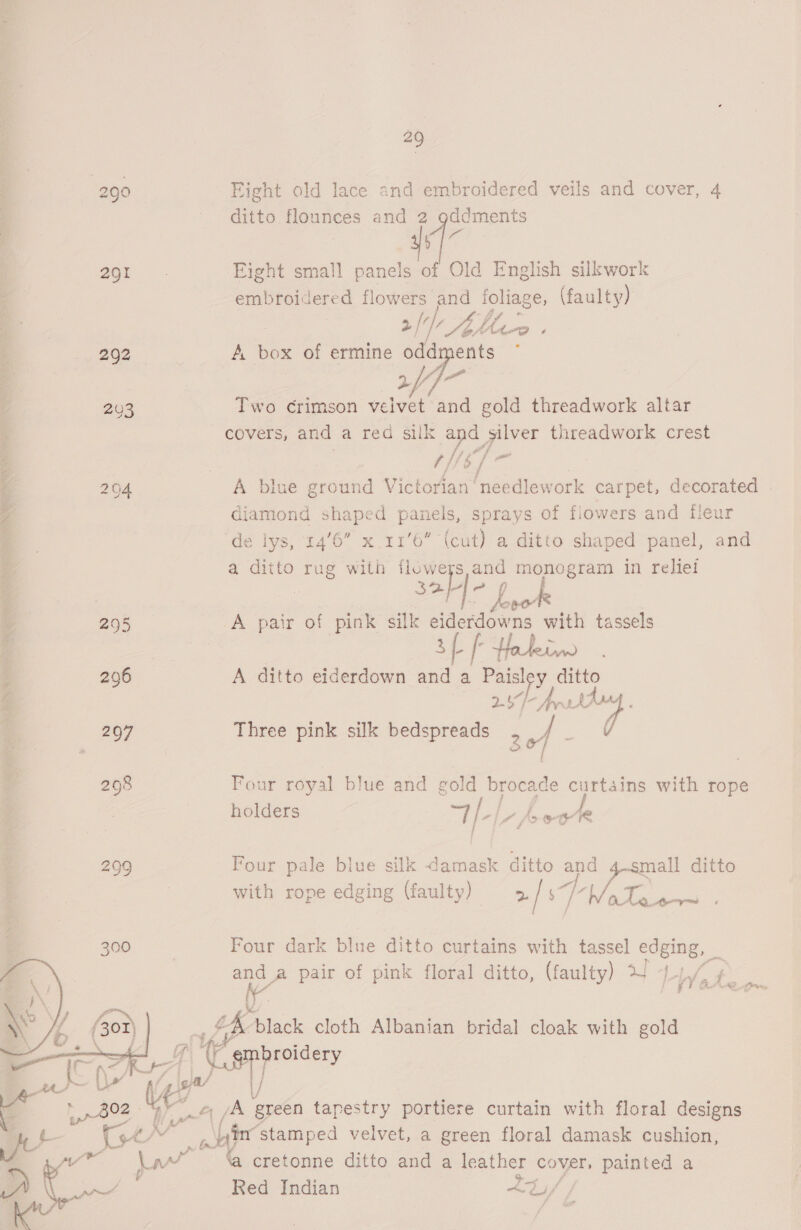 29
290 Eight old lace and embroidered veils and cover, 4
ditto flounces and 2 oddments
291 Eight small panels of Old English silkwork
embroidered flowers and foliage, (faulty)
292 A box of ermine oddments
293 Two crimson velvet and gold threadwork altar
covers, and a red silk and silver threadwork crest
294 A blue ground Victorian needlework carpet, decorated
diamond shaped panels, sprays of flowers and fleur
de lys, 14'6" x 11'6" (cut) a ditto shaped panel, and
a ditto rug with flowers and monogram in relief
295 A pair of pink silk eiderdowns with tassels
296 A ditto eiderdown and a Paisley ditto
297 Three pink silk bedspreads
298 Four royal blue and gold brocade curtains with rope
holders
299 Four pale blue silk damask ditto and 4 small ditto
with rope edging (faulty)
300 Four dark blue ditto curtains with tassel edging,
and a pair of pink floral ditto, (faulty)
301 A black cloth Albanian bridal cloak with gold
embroidery
302 A green tapestry portiere curtain with floral designs
in stamped velvet, a green floral damask cushion,
a cretonne ditto and a leather cover, painted a
Red Indian